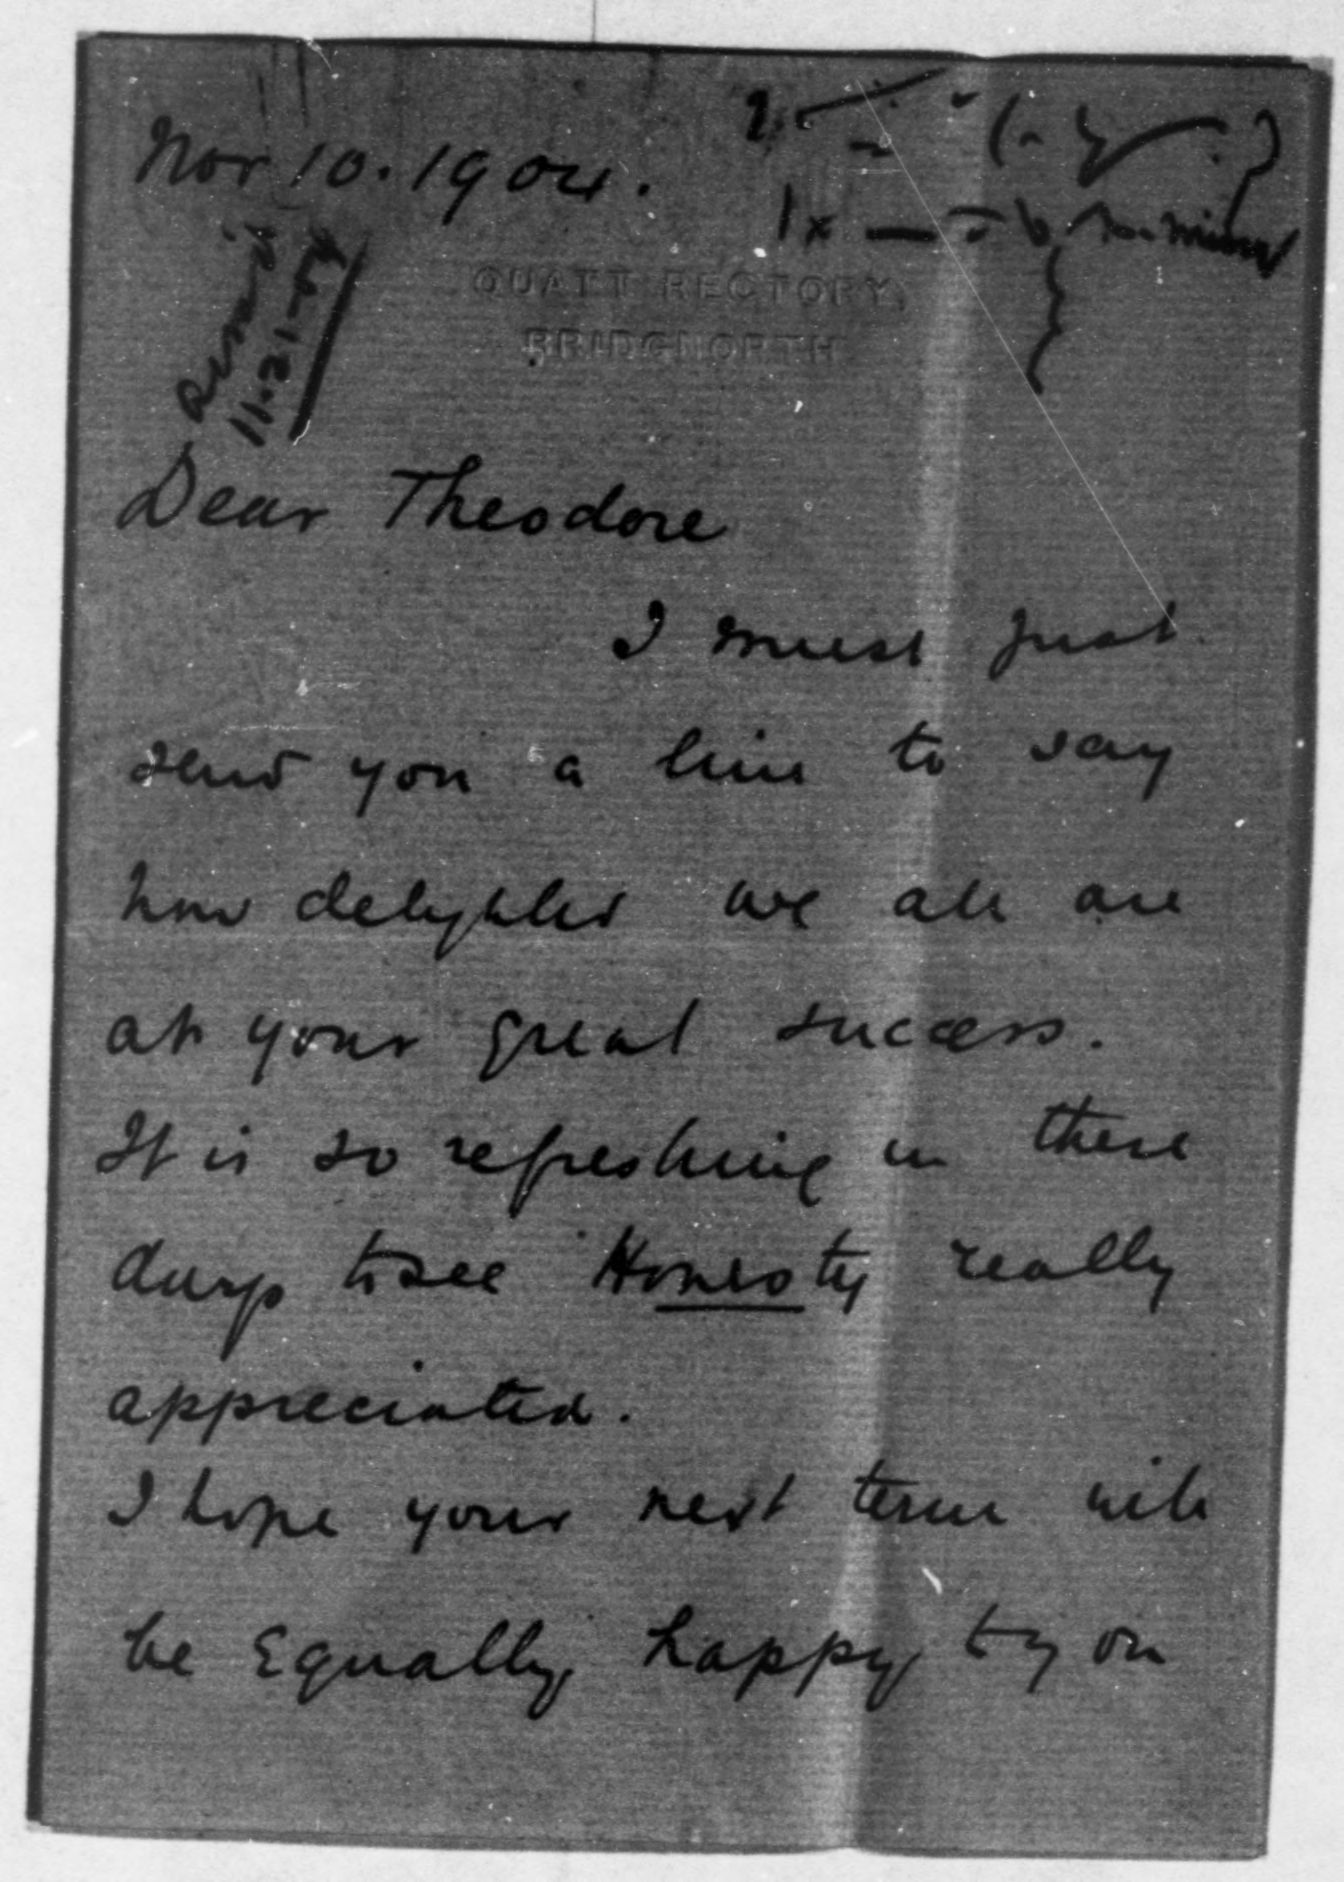 Nov 10. 1904.
QUATT RECTORY,
BRIDGNORTH
ackd
11-21-04
Dear Theodore
I must just
send you a line to say
how delighted we all are
at your great success.
It is so refreshing in these
days to see Honesty really
appreciated.
I hope your next term will
be Equally happy to you